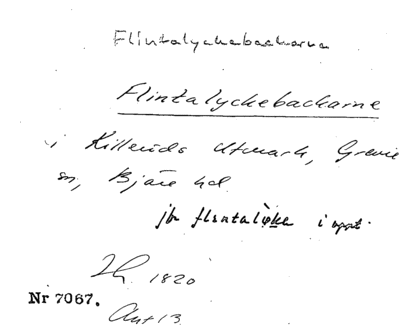 Flintalyckebackarna
Flintalyckebackarne
i Killeröds Utmark, Grevie
sn, Bjäre hd.
jfr flintalycka i uppt.
Lh. 1820
Nr 7067.
Akt 13